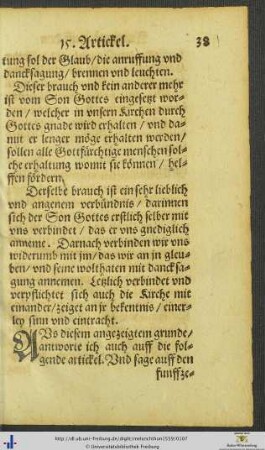 15. Artickel. 38
tung sol der Glaub/die anruffung vnd
dancksagung/ brennen vnd leuchten.
Dieser brauch vnd kein anderer mehr
ist vom Son Gottes eingesetzt wor-
den / welcher in vnsern Kirchen durch
Gottes gnade wird erhalten / vnd da-
mit er lenger möge erhalten werden/
sollen alle Gottfürchtige menschen sol-
che erhaltung womit sie können / hel-
ffen fördern.
Derselbe brauch ist ein sehr lieblich
vnd angenem verbündnis / darinnen
sich der Son Gottes erstlich selber mit
vns verbindet / das er vns gnediglich
anneme. Darnach verbinden wir vns
widerumb mit jm/das wir an jn gleu-
ben/vnd seine wolthaten mit danck sa-
gung annemen. Letzlich verbindet vnd
verpflichtet sich auch die Kirche mit
einander/zeiget an jr bekentnis/ einer-
ley sinn vnd eintracht.
AVs diesem angezeigtem grunde/
antworte ich auch auff die fol-
gende artickel. Vnd sage auff den
funffze-
© Universitätsbibliothek Freiburg
Baden-Württemberg